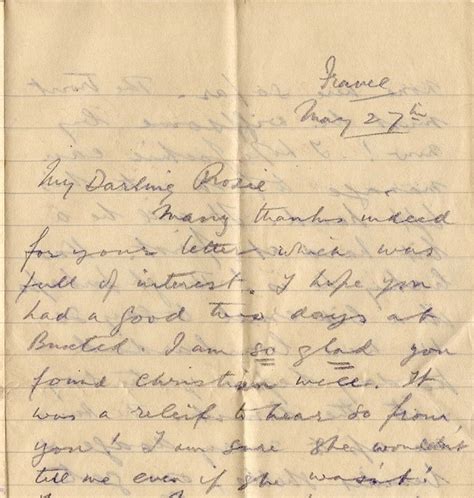 France
May 27th
My Darling Rosie
Many thanks indeed
for your letter which was
full of interest. I hope you
had a good two days at
Buxted. I am so glad you
found Christian well. It
was a releif to hear so from
you! I am sure she wouldn't
tell me even if she wasn't!